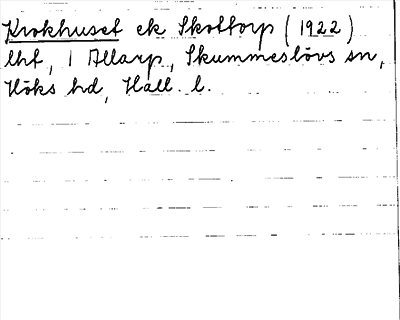 Krokhuset ek Skottorp (1922)
lht, 1 Allarp, Skummeslövs sn,
Höks hd, Hall. l.